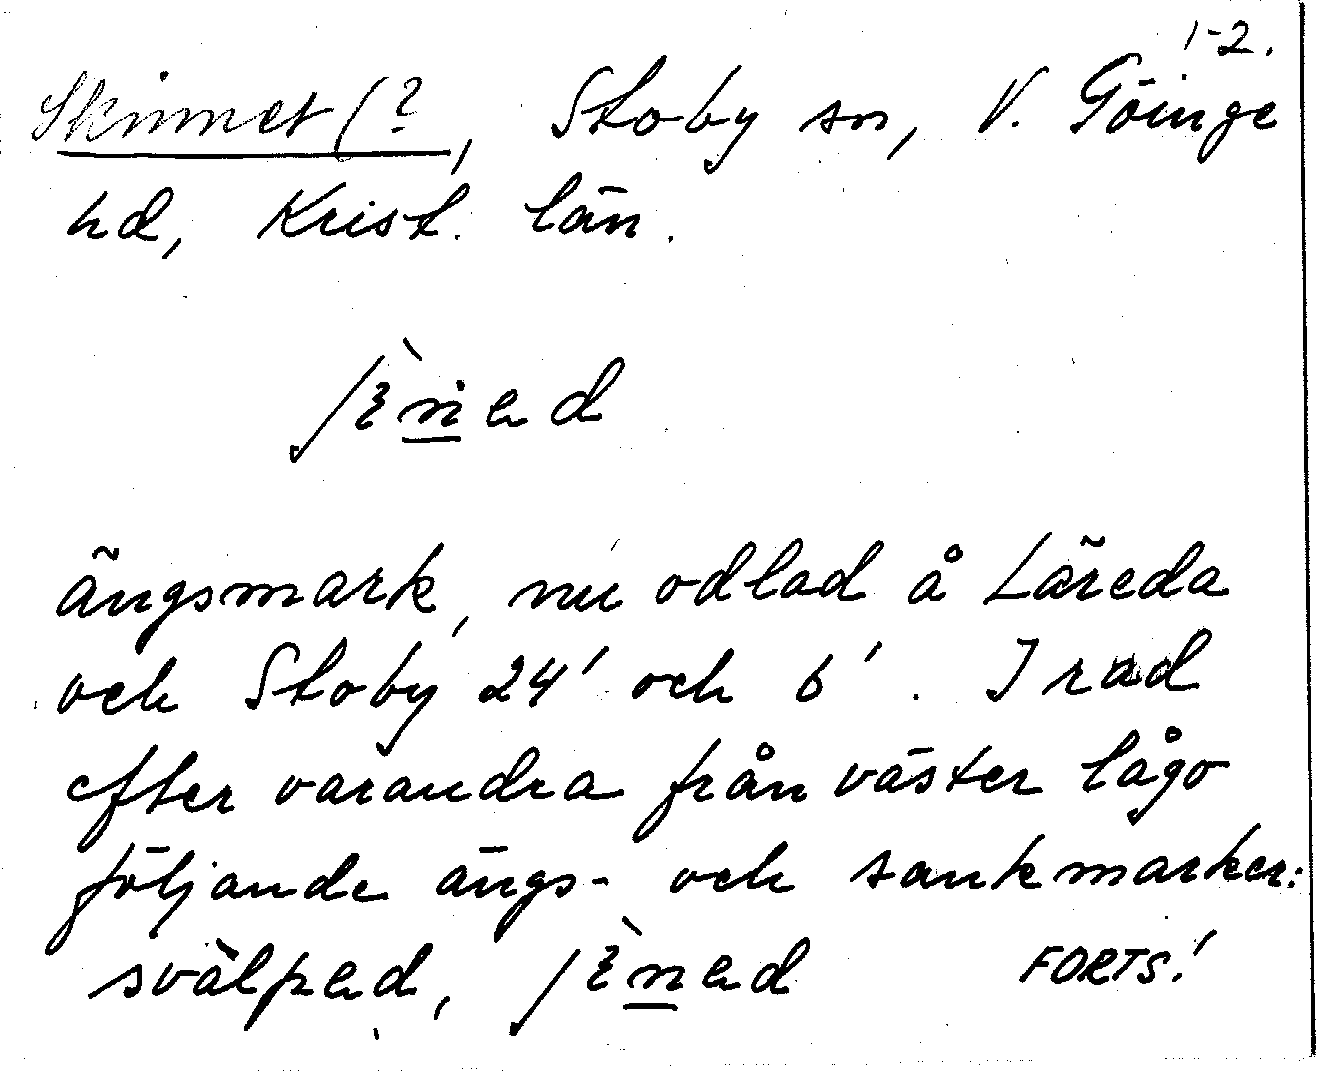 1-2.
Skinnet (?, Stoby sn, V. Göinge
hd, Krist. län.
ʃɛ̀nəd
ängsmark, nu odlad å Läreda
och Stoby 24' och 6'. I rad
efter varandra från väster lågo
följande ängs- och sankmarker:
svälpəd, ʃɛ̀nəd FORTS!